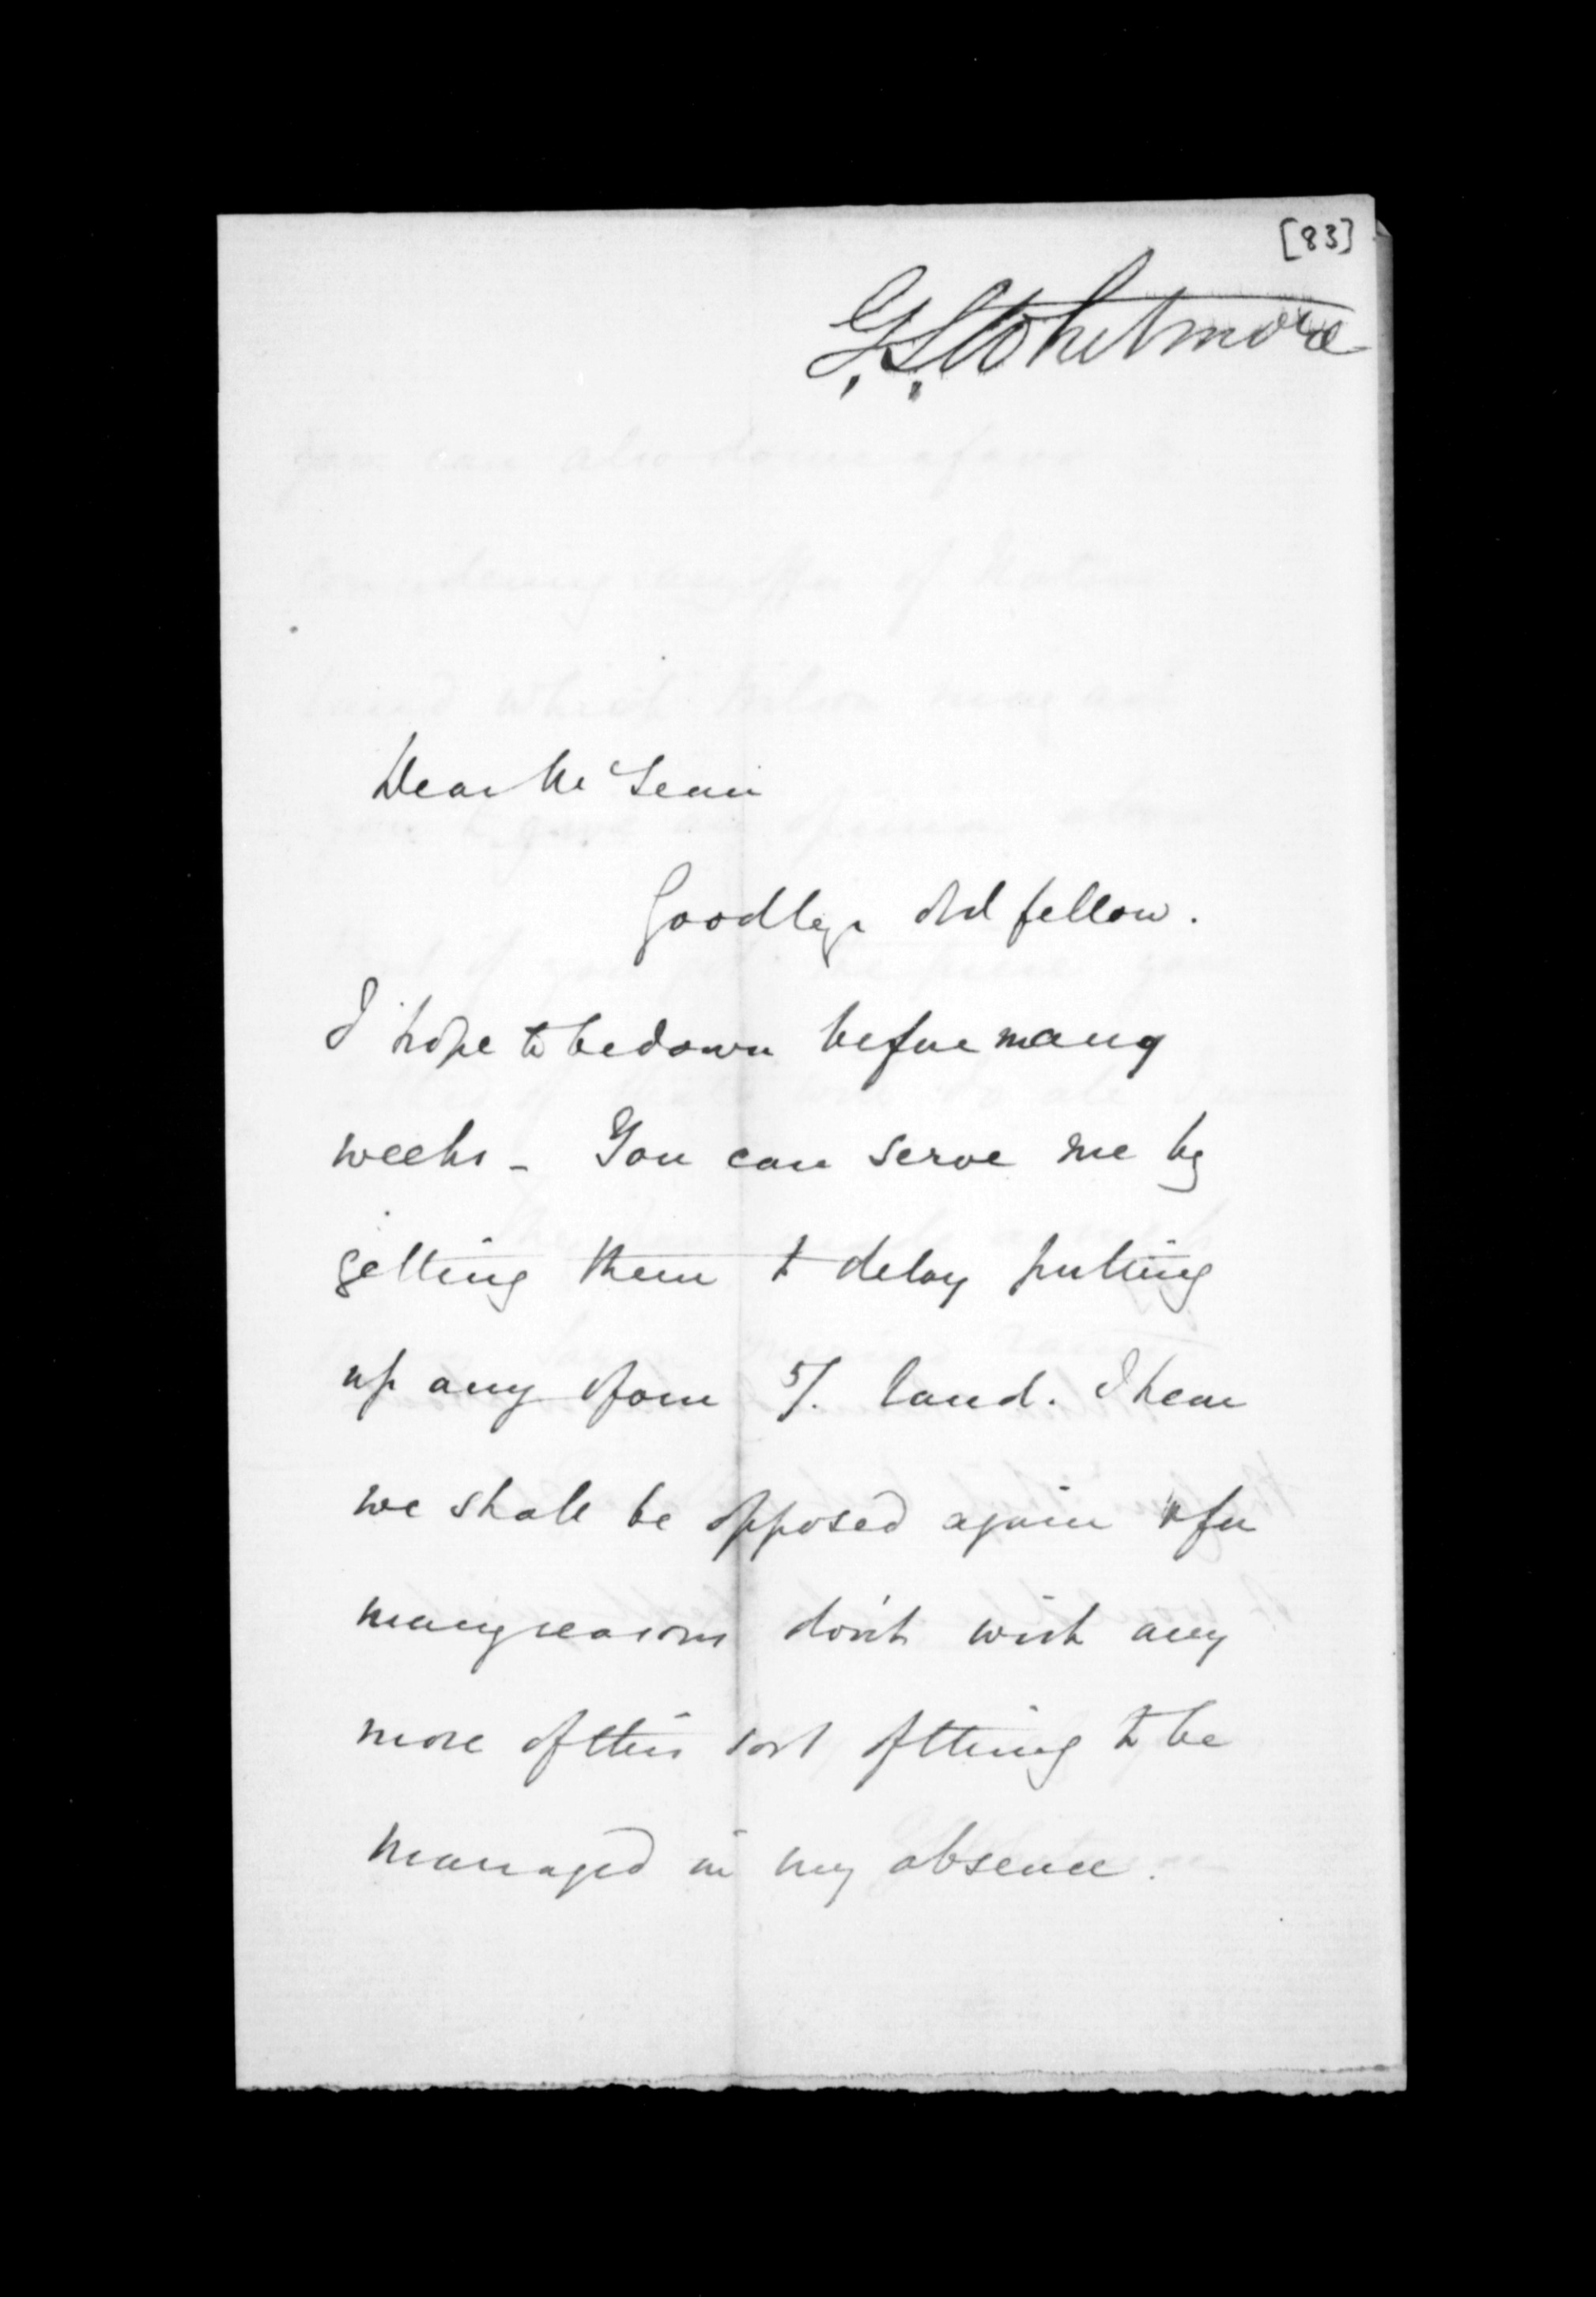 [83]
G.S. Whitmore
Dear McLean
Goodbye old fellow.
I hope to be down before many
weeks - You can serve me by
getting them to delay putting
up any of our 5/. land. I hear
we shall be opposed again & for
many reasons don't wish any
more of this sort of thing to be
managed in my absence.